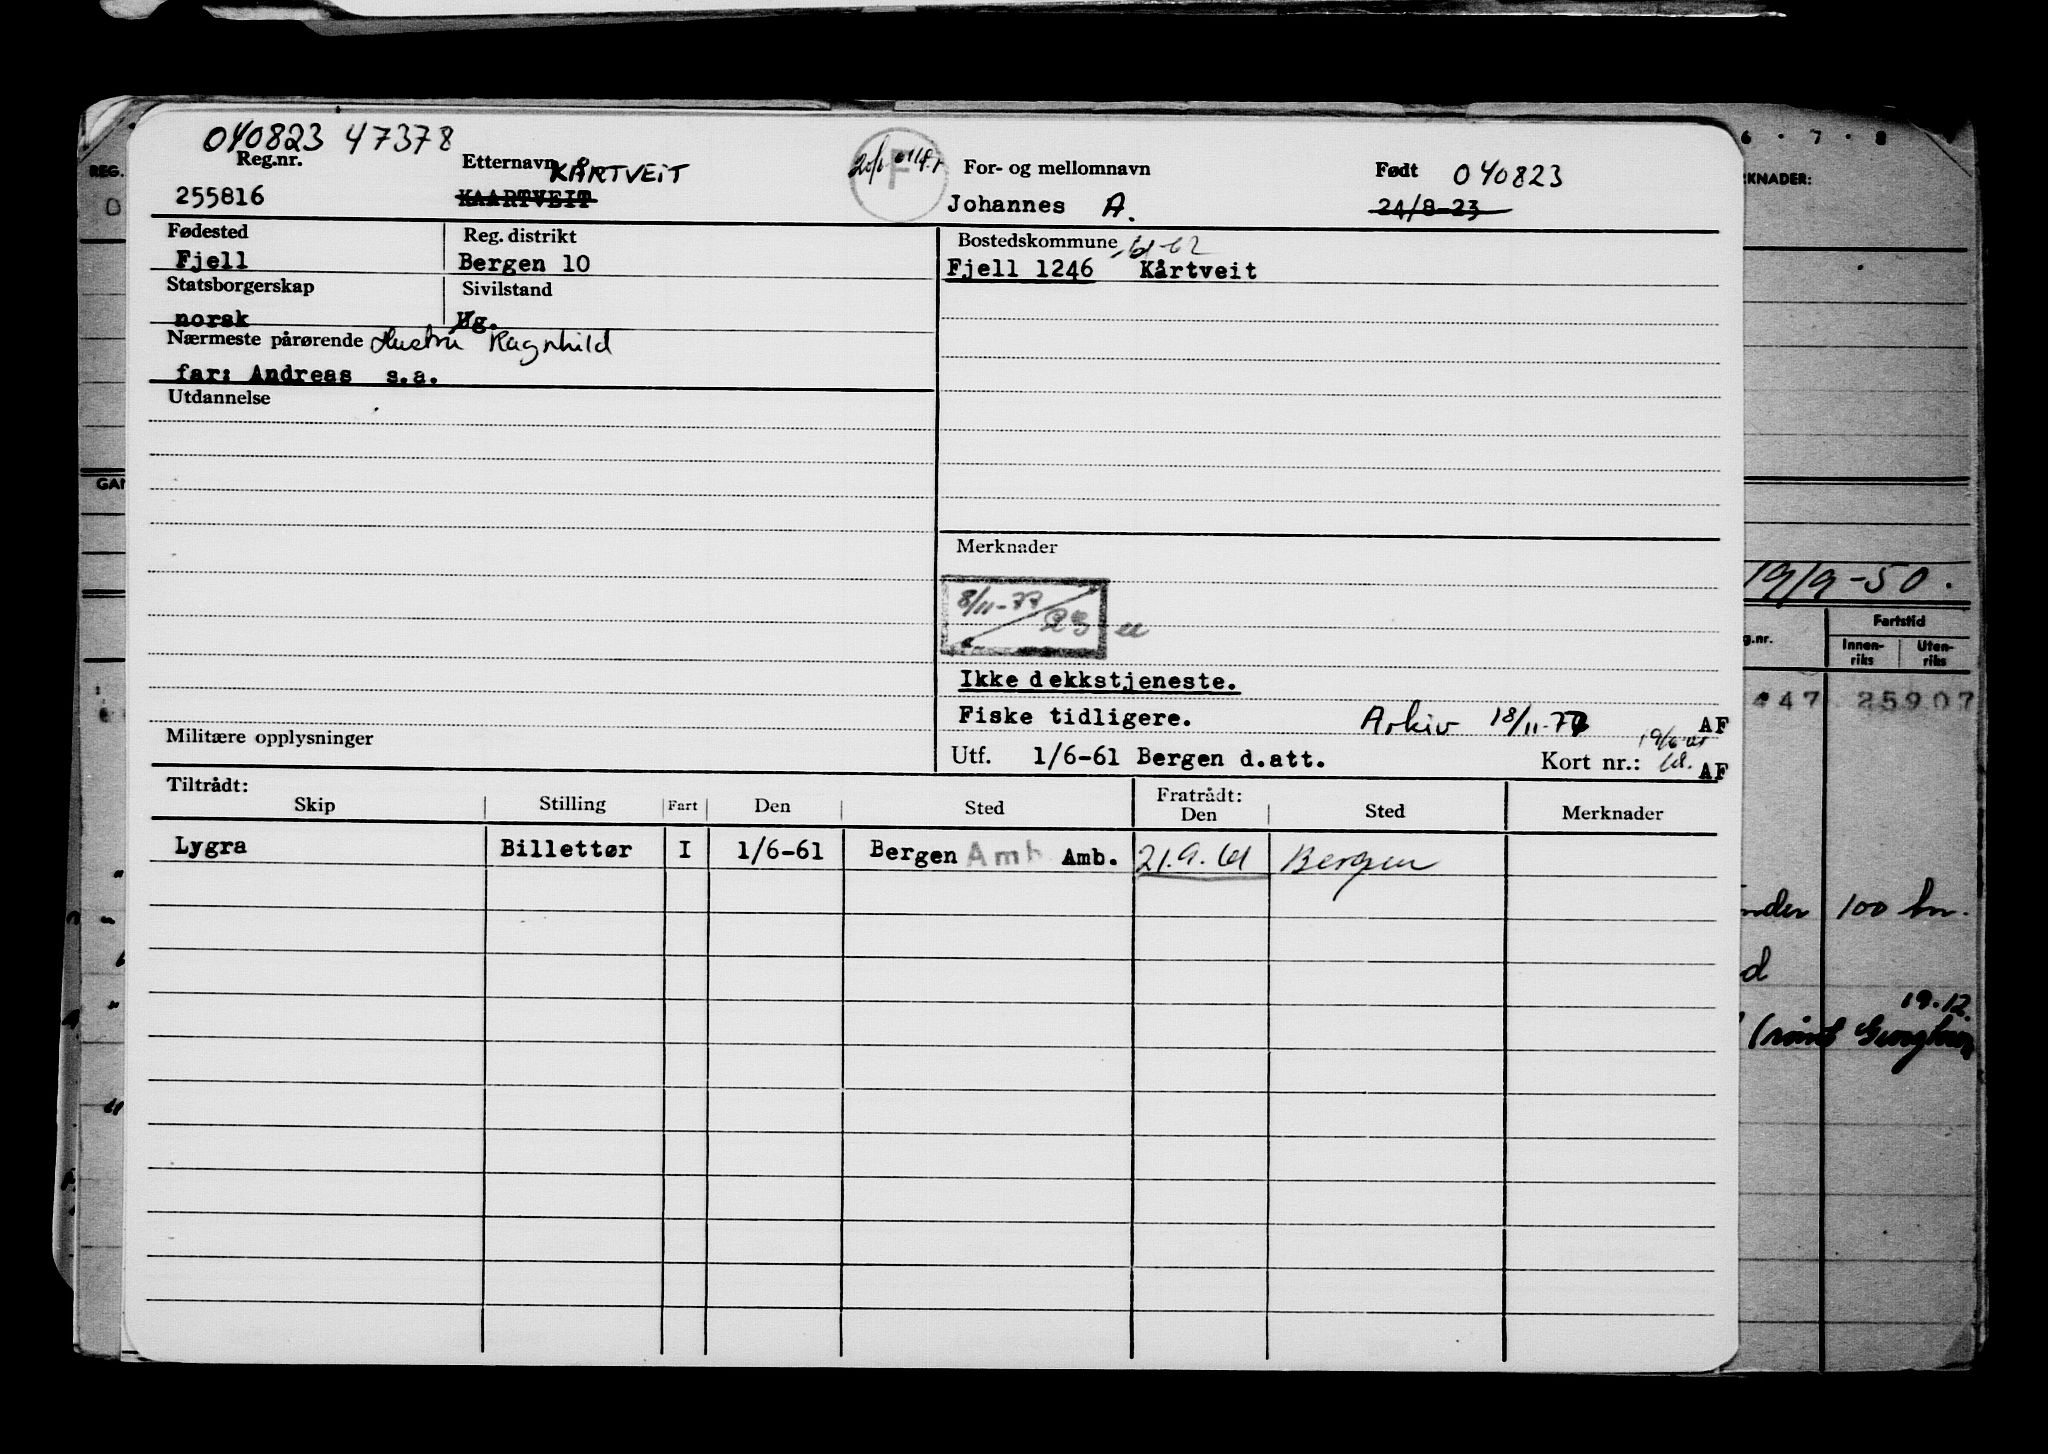 040823 47378
Reg.nr. Etternavn KÅRTVEIT F For- og mellomnavn Født 040823
255816 KAARTVEIT Johannes A. 24/8-23
Fødested Reg. distrikt Bostedskommune
Fjell Bergen 10 Fjell 1246 Kårtveit
Statsborgerskap Sivilstand
norsk
Nærmeste pårørende Hustru Ragnhild
far: Andreas s.a.
Utdannelse
Merknader
8/11-77
Ikke dekkstjeneste.
Fiske tidligere. Arkiv 18/11-77 AF
Militære opplysninger
Utf. 1/6-61 Bergen d.att. Kort nr.: AF
Tiltrådt: Fratrådt:
Skip Stilling Fart Den Sted Den Sted Merknader
Lygra Billettør I 1/6-61 Bergen Amb Amb. 21.9.61 Bergen
6 · 7 · 8
KNADER:
19/9-50.
g.nr. Fartstid
Innen-riks Uten-riks
47 25907
nder 100 kr.
d
19.12.
REG.
GAN